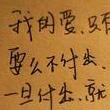 我的爱,只有
要么不付出,
一旦付出,就